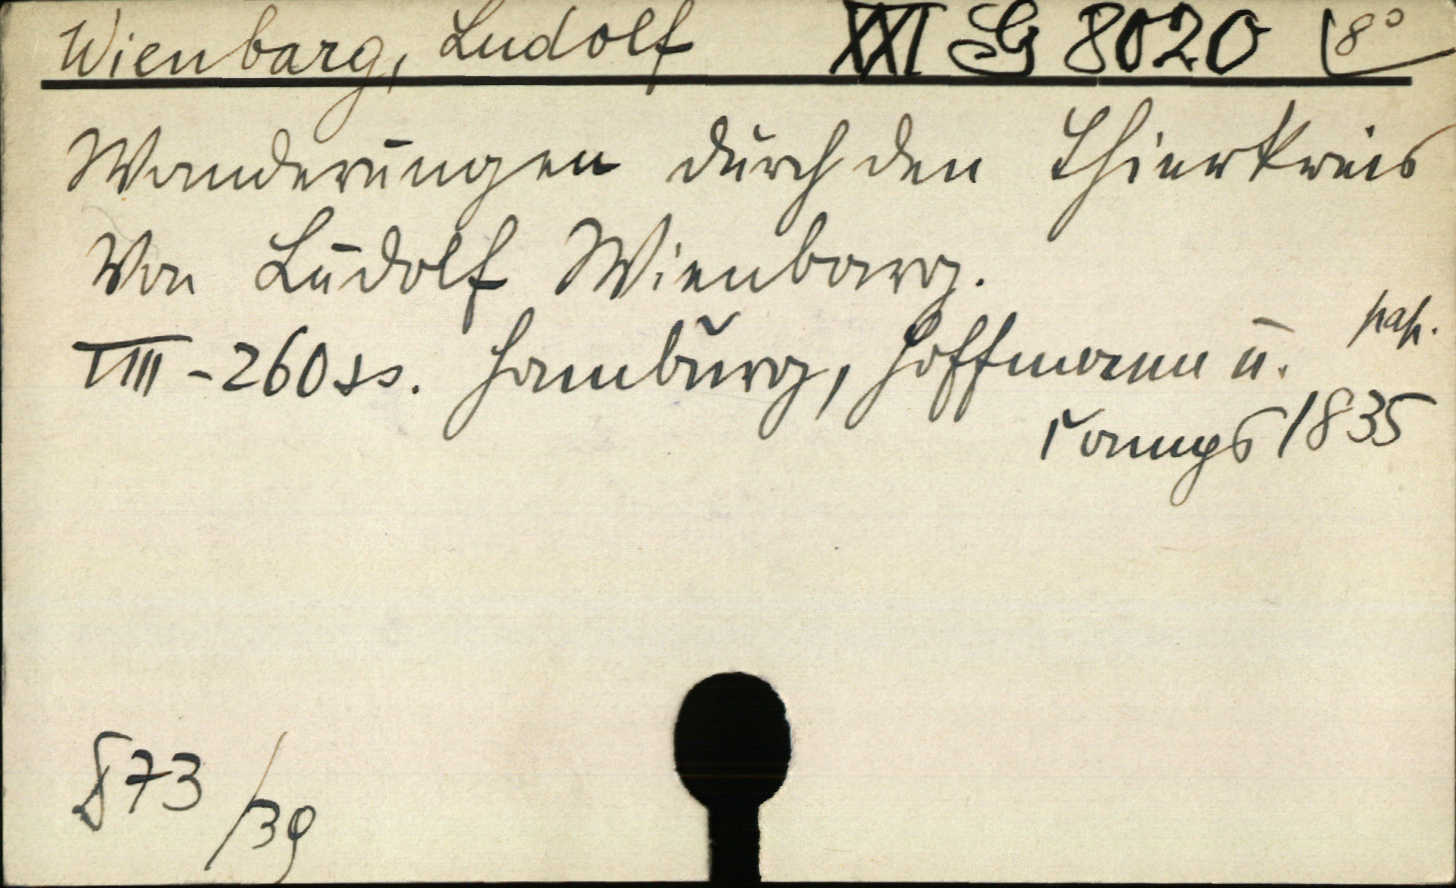 Wienbarg, Ludolf XXI SG 8020 8°
Wanderungen durch den Thierkreis
Von Ludolf Wienbarg.
VIII - 260 ss. Hamburg, Hoffmann u. pap.
Campe 1835
873/39